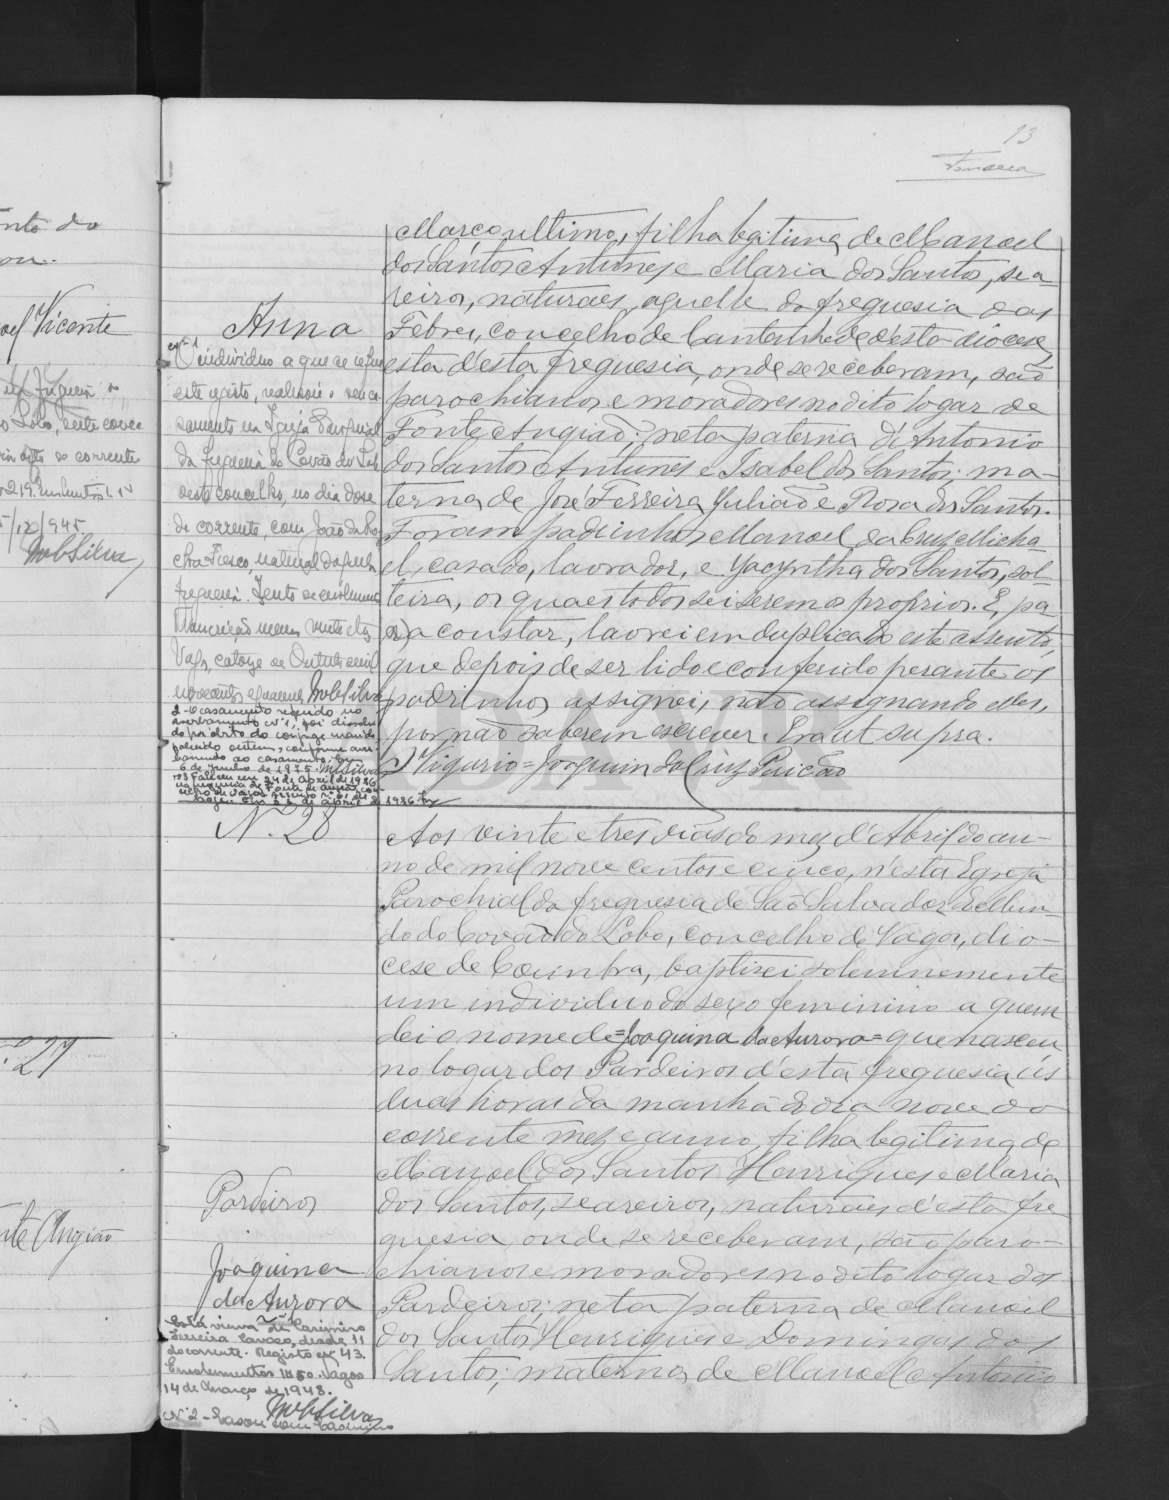 13
Fonseca
nto do
ou.
Vicente
Lobo, deste conce
corrente
/945
MobSilva
27
Angião
Março ultimo, filha legitima de Manoel
dos Santos Antunes e Maria dos Santos, sea
reiros, naturaes, aquelle da freguesia das
Febres, concelho de Cantanhede d'esta diocese,
esta d'esta freguesia, onde se receberam, são
parochianos e moradores no dito logar de
Fonte Angião; neta paterna d'Antonio
dos Santos Antunes e Isabel dos Santos; ma-
terna de José Ferreira Julião e Rosa dos Santos.
Foram padrinhos Manoel da Cruz Micha-
el, casado, lavrador, e Jacyntha dos Santos, sol-
teira, os quaes todos sei serem os proprios. E, pa
ra constar, lavrei em duplicado este assento,
que depois de ser lido e conferido perante os
padrinhos, assignei, não assignando elles,
por não saberem escrever. Era ut supra.
O Vigario = Joaquim da Cruz Paixão
Anna
Nº 1
O individuo a que se refere
este registo, realisou o seu ca
samento na Igreja Paroquial
da freguesia do Covão do Lobo
deste concelho, no dia doze
do corrente, com João da Ro
cha Fresco, natural daquela
freguesia.
Vagos, catorze de Outubro mil
novecentos e quarenta MobSilva
2 - O casamento referido no
averbamento nº 1, foi dissolvi
do por óbito do conjuge marido
falecido ontem, conforme aver
bamento ao casamento.
6 de Junho de 1975. MSilva
nº 3 Faleceu em 24 de Abril de 1986
na freguesia de Fonte de Angeão con
celho de Vagos
de Abril de 1986
N.º 28
Pardeiros
Joaquina
da Aurora
Aos vinte e tres dias do mez d'Abril do an-
no de mil nove centos e cinco, n'esta Egreja
Parochial da freguesia de São Salvador do Mun-
do do Covão do Lobo, concelho de Vagos, dio-
cese de Coimbra, baptisei solemnemente
um individuo do sexo feminino a quem
dei o nome de = Joaquina da Aurora = que nasceu
no logar dos Pardeiros d'esta freguesia ás
duas horas da manhã do dia nove do
corrente mez e anno, filha legitima de
Manoel dos Santos Henriques e Maria
dos Santos, seareiros, naturaes d'esta fre
guesia, onde se receberam, são paro-
chianos e moradores no dito logar dos
Pardeiros; neta paterna de Manoel
dos Santos Henriques e Domingas dos
Santos; materna de Manoel Antonio
Está viuva de Casimiro
Ferreira desde 11
do corrente. Registo nº 43.
Emolumentos 1$50. Vagos
14 de Março de 1948.
MobSilva
Nº 2 - Casou com Casimiro